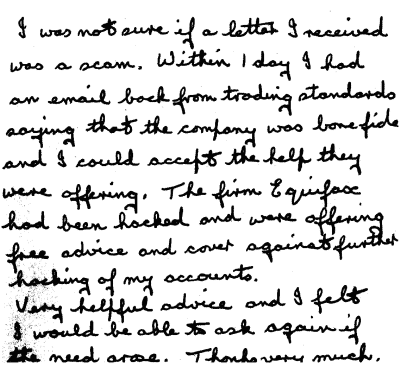 I was not sure if a letter I received
was a scam. Within 1 day I had
an email back from trading standards
saying that the company was bone fide
and I could accept the help they
were offering. The firm Equifax
had been hacked and were offering
free advice and cover against further
hacking of my accounts.
Very helpful advice and I felt
I would be able to ask again if
the need arose. Thanks very much.